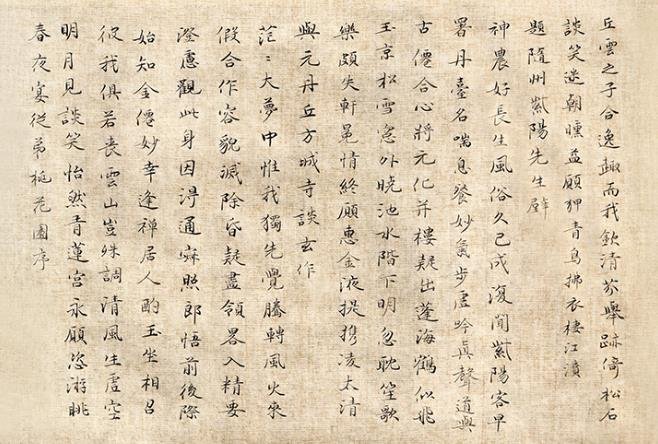 丘雲之子合逸趣而我欽清芬舉跡倚松石
談笑迷朝曛益願狎青鳥拂衣棲江濆
題隨州紫陽先生壁
神農好長生風俗久已成復聞紫陽客早
署丹臺名喘息餐妙氣步虛吟真聲道與
古僊合心將元化并樓疑出蓬海鶴似飛
玉京松雪窗外曉池水階下明忽耽笙歌
樂頗失軒冕情終願惠金液提攜凌太清
與元丹丘方城寺談玄作
茫〻大夢中惟我獨先覺騰轉風火來
假合作容貌滅除昏疑盡領略入精要
澄慮觀此身因得通寂照郎悟前後際
始知金僊妙幸逢禪居人酌玉坐相召
彼我俱若喪雲山豈殊調清風生虛空
明月見談笑怡然青蓮宮永願恣游眺
春夜宴從弟桃花園序